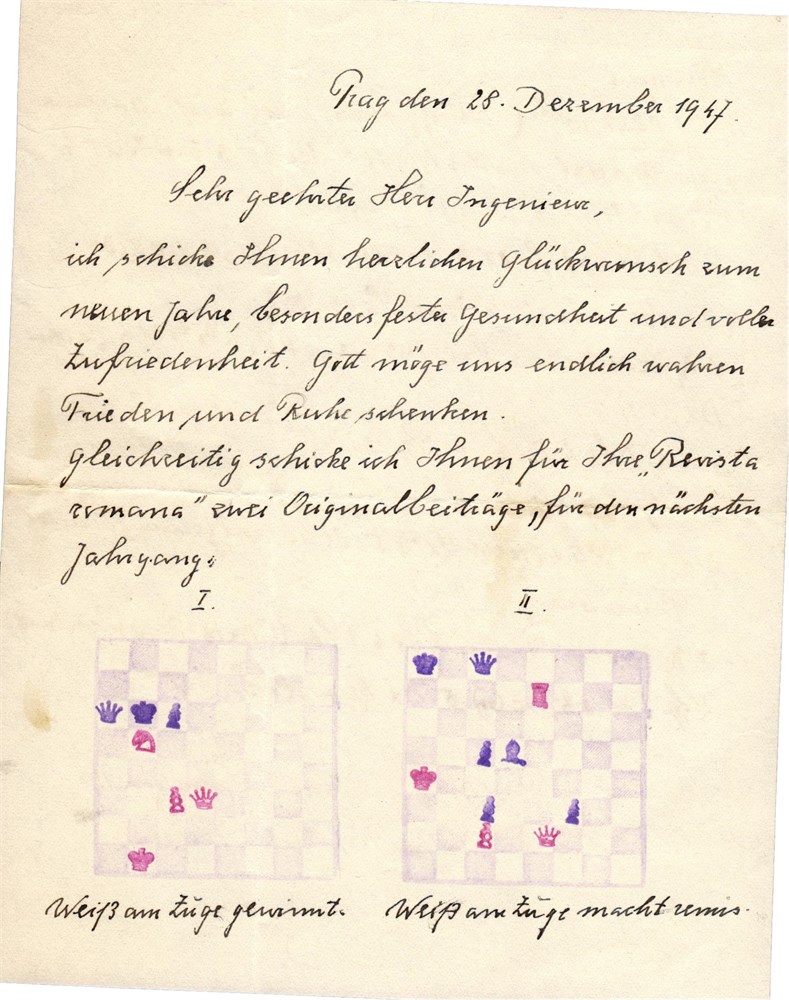 Prag den 28. Dezember 1947.
Sehr geehrter Herr Ingenieur,
ich schicke Ihnen herzlichen Glückwunsch zum
neuen Jahre, besonders fester Gesundheit und voller
Zufriedenheit. Gott möge uns endlich wahren
Frieden und Ruhe schenken.
Gleichzeitig schicke ich Ihnen für Ihre „Revista
romana" zwei Originalbeiträge, für den nächsten
Jahrgang.
I. II.
Weiß am Zuge gewinnt. Weiß am Zuge macht remis.